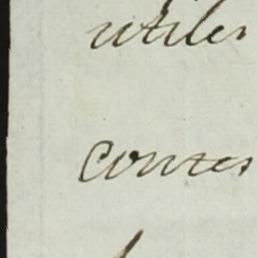 utiles
contes